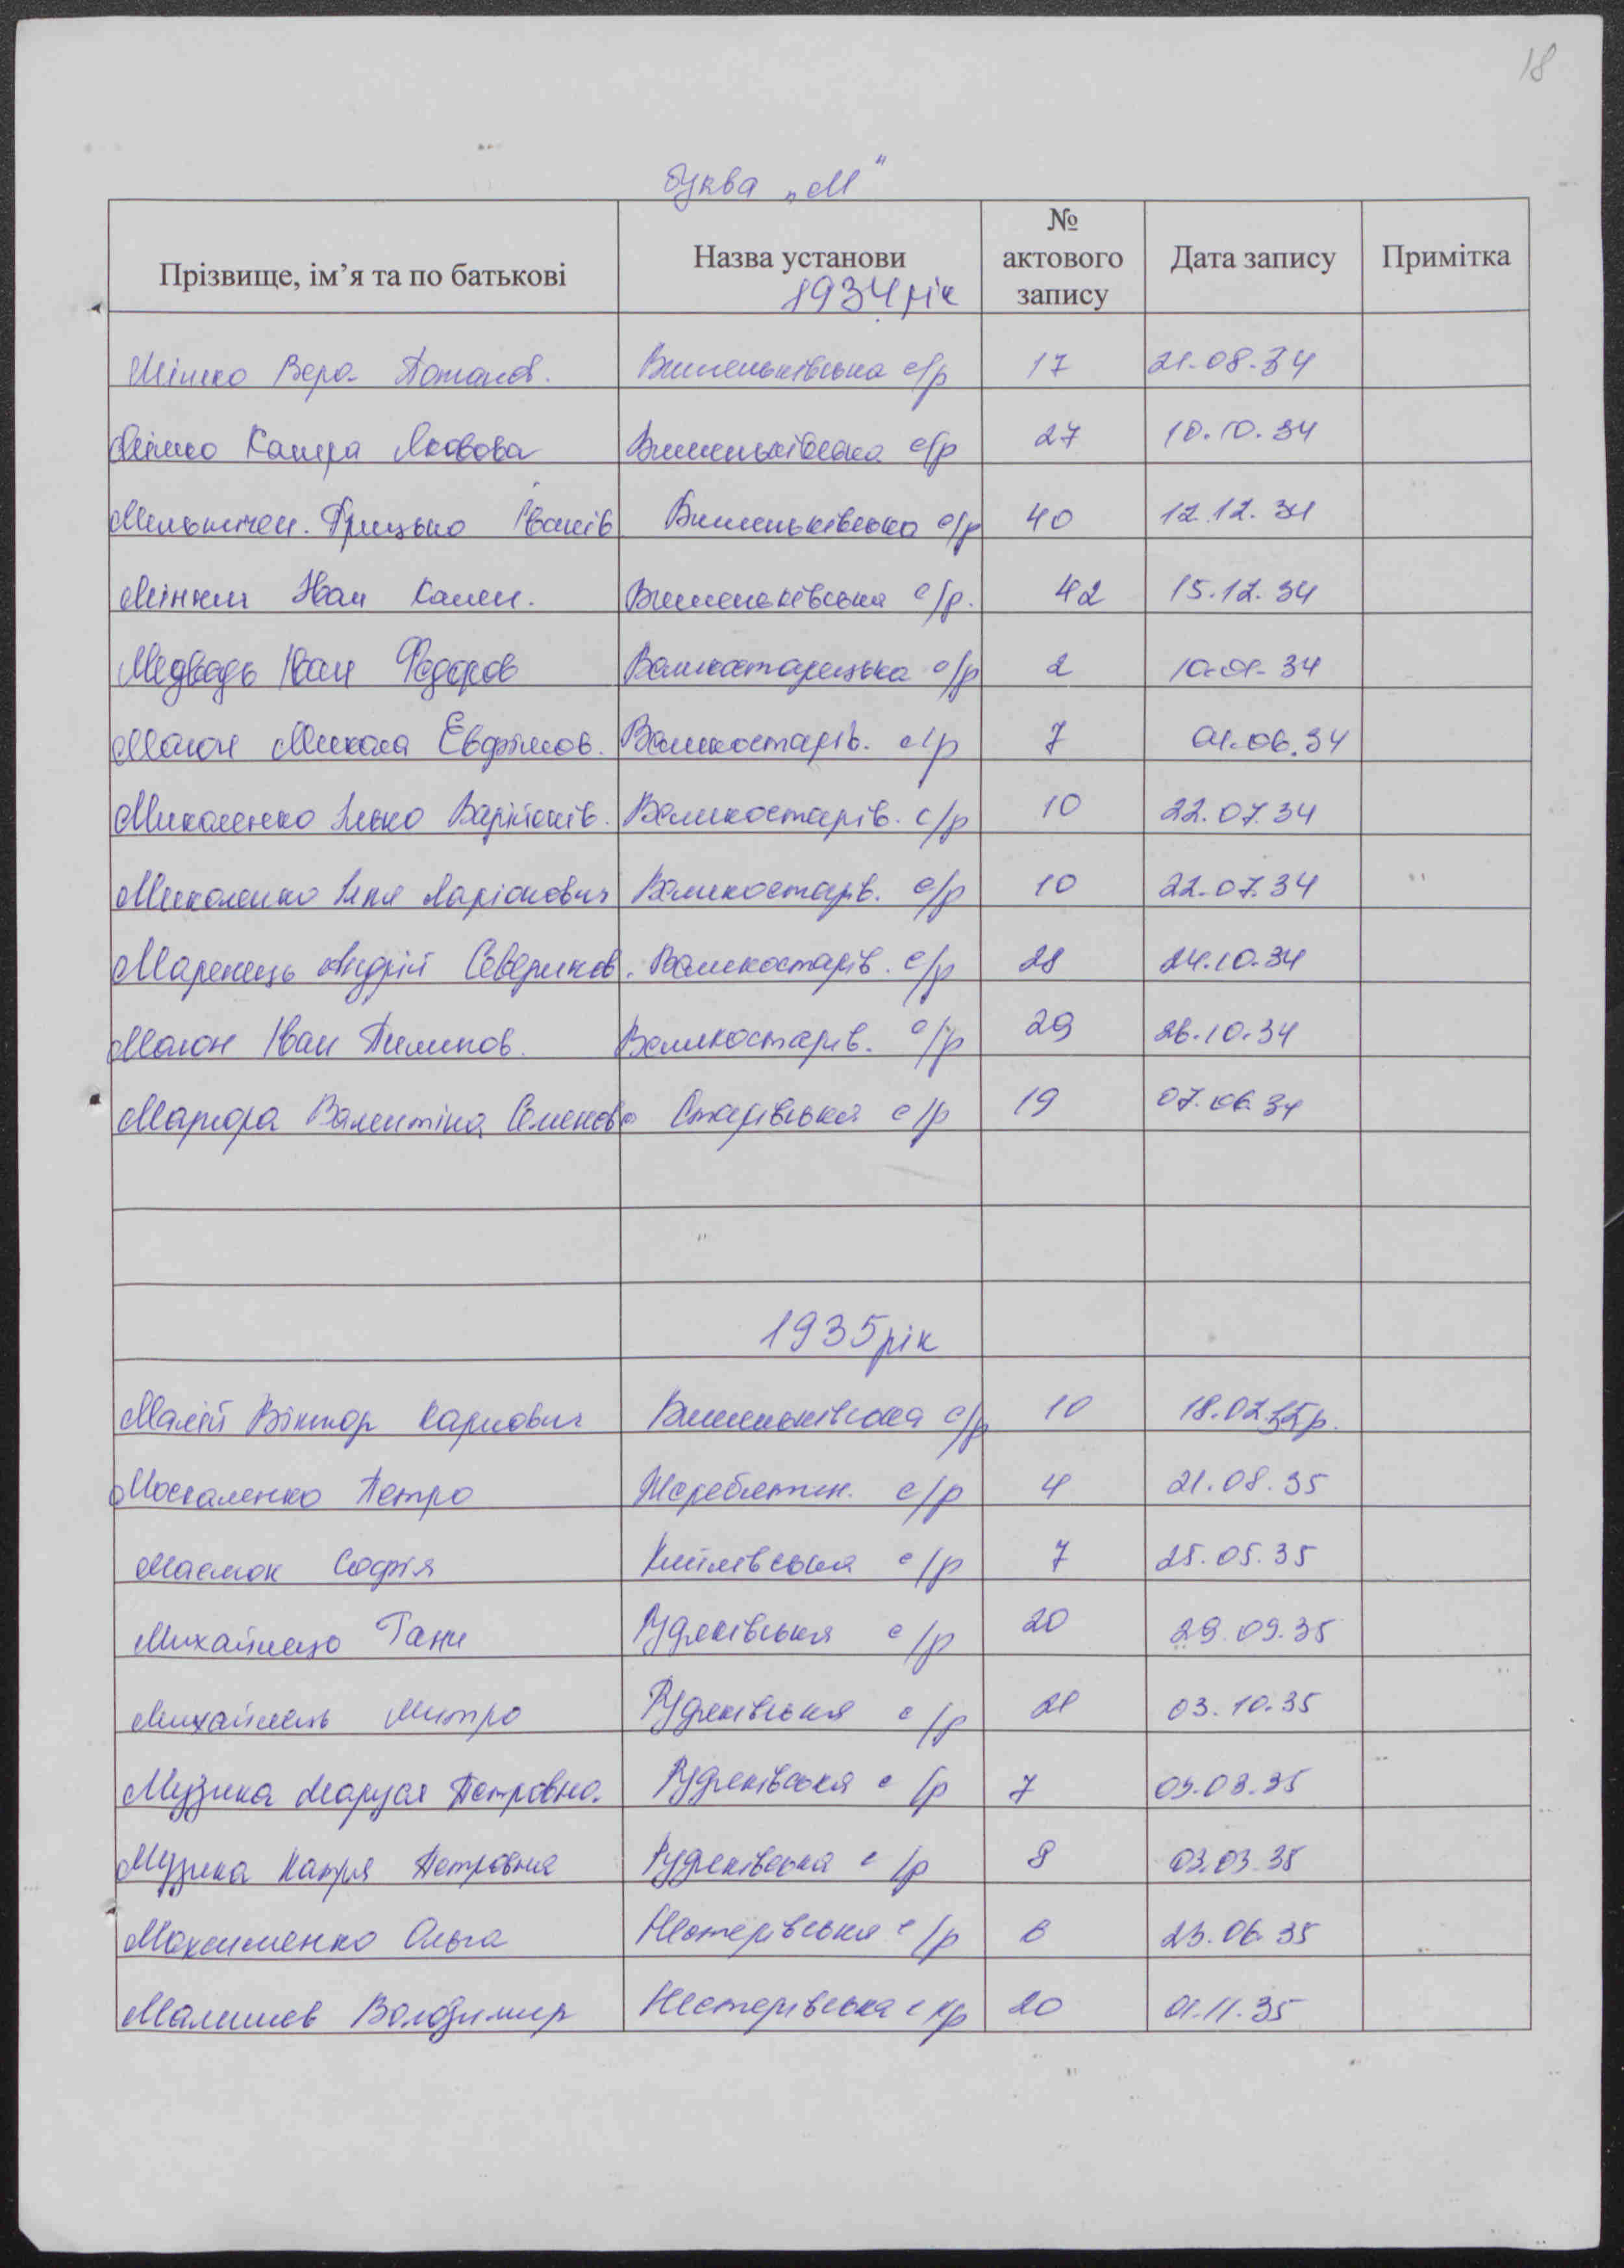 18
буква „М"
Прізвище, ім’я та по батькові Назва установи 1934 рік № актового запису Дата запису Примітка
Мішко Вера Потапов. Вишеньківська с/р 17 21.08.34
Мішко Катря Яковова Вишеньківська с/р 27 10.10.34
Мельничен. Грицько Іванів Вишеньківська с/р 40 12.12.34
Іван Вишеньківська с/р. 42 15.12.34
Медведь Іван Федоров Великостарицька с/р 2 10.01.34
Могон Микола Евфімов. Великостарів. с/р 7 01.06.34
Миколенко Ілько Ларійонів. Великостарів. с/р 10 22.07.34
Миколенко Ілля Ларіонович Великостарів. с/р 10 22.07.34
Маренець Андрій Северинов. Великостарів. с/р 28 24.10.34
Могон Іван Пилипов. Великостарів. с/р 29 26.10.34
Валентіна Семенова Старівська с/р 19 07.06.34
1935 рік
Малій Віктор Карпович Вишеньківська с/р 10 18.02.35р.
Москаленко Петро Жеребятин. с/р 4 21.08.35
Масмок Софія Кийлівська с/р 7 25.05.35
Ганн Рудяківська с/р 20 29.09.35
Михайлець Митро Рудяківська с/р 21 03.10.35
Музика Маруся Петровна. Рудяківська с/р 7 03.03.35
Музика Катря Петровна Рудяківська с/р 8 03.03.35
Максименко Ольга Нестерівська с/р 6 23.06.35
Малишев Володимир Нестерівська с/р 20 01.11.35